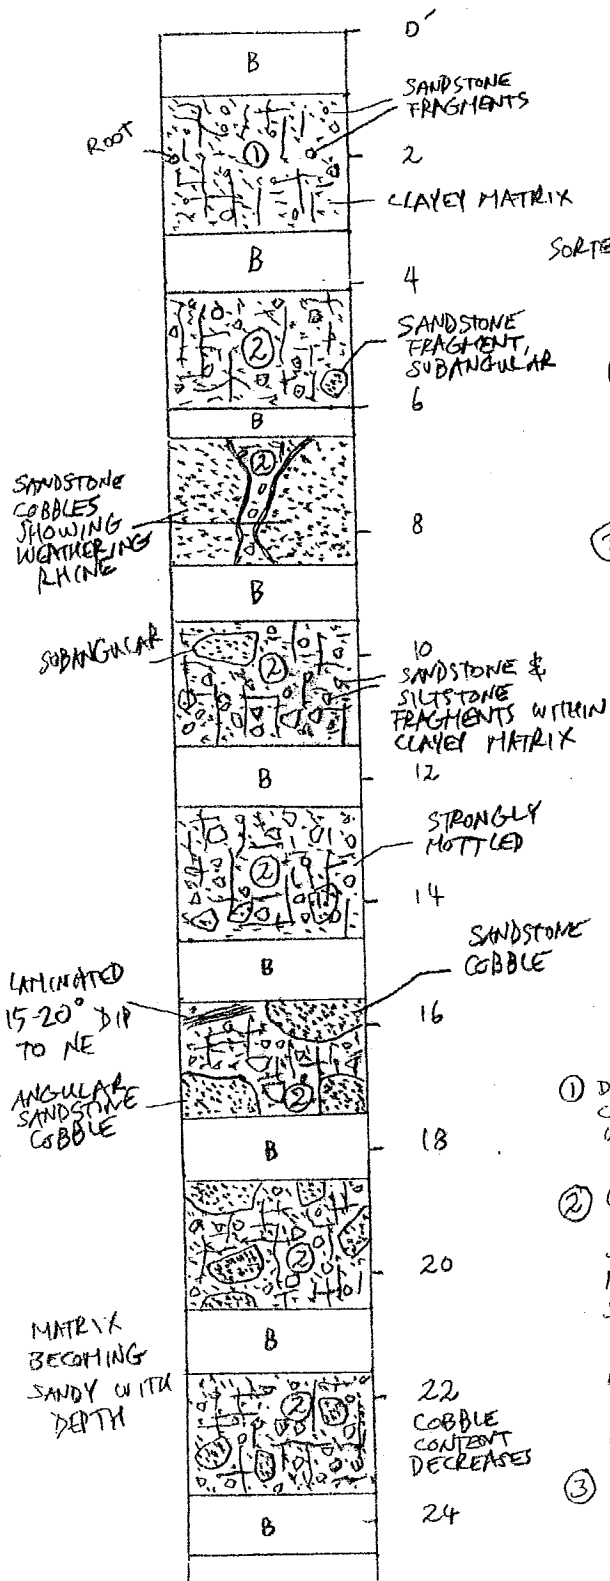 0'
B
SANDSTONE
FRAGMENTS
ROOT
①
2
CLAYEY MATRIX
B
SORTE
4
SANDSTONE
FRAGMENT,
SUBANGULAR
②
6
B
②
SANDSTONE
COBBLES
SHOWING
WEATHERING
RHINE
8
B
SUBANGULAR
②
10
SANDSTONE &
SILTSTONE
FRAGMENTS WITHIN
CLAYEY MATRIX
B
12
STRONGLY
MOTTLED
②
14
B
SANDSTONE
COBBLE
LAMINATED
15-20° DIP
TO NE
16
ANGULAR
SANDSTONE
COBBLE
②
① D
C
B
18
②
②
20
MATRIX
BECOMING
SANDY WITH
DEPTH
B
②
22
COBBLE
CONTENT
DECREASES
③
B
24